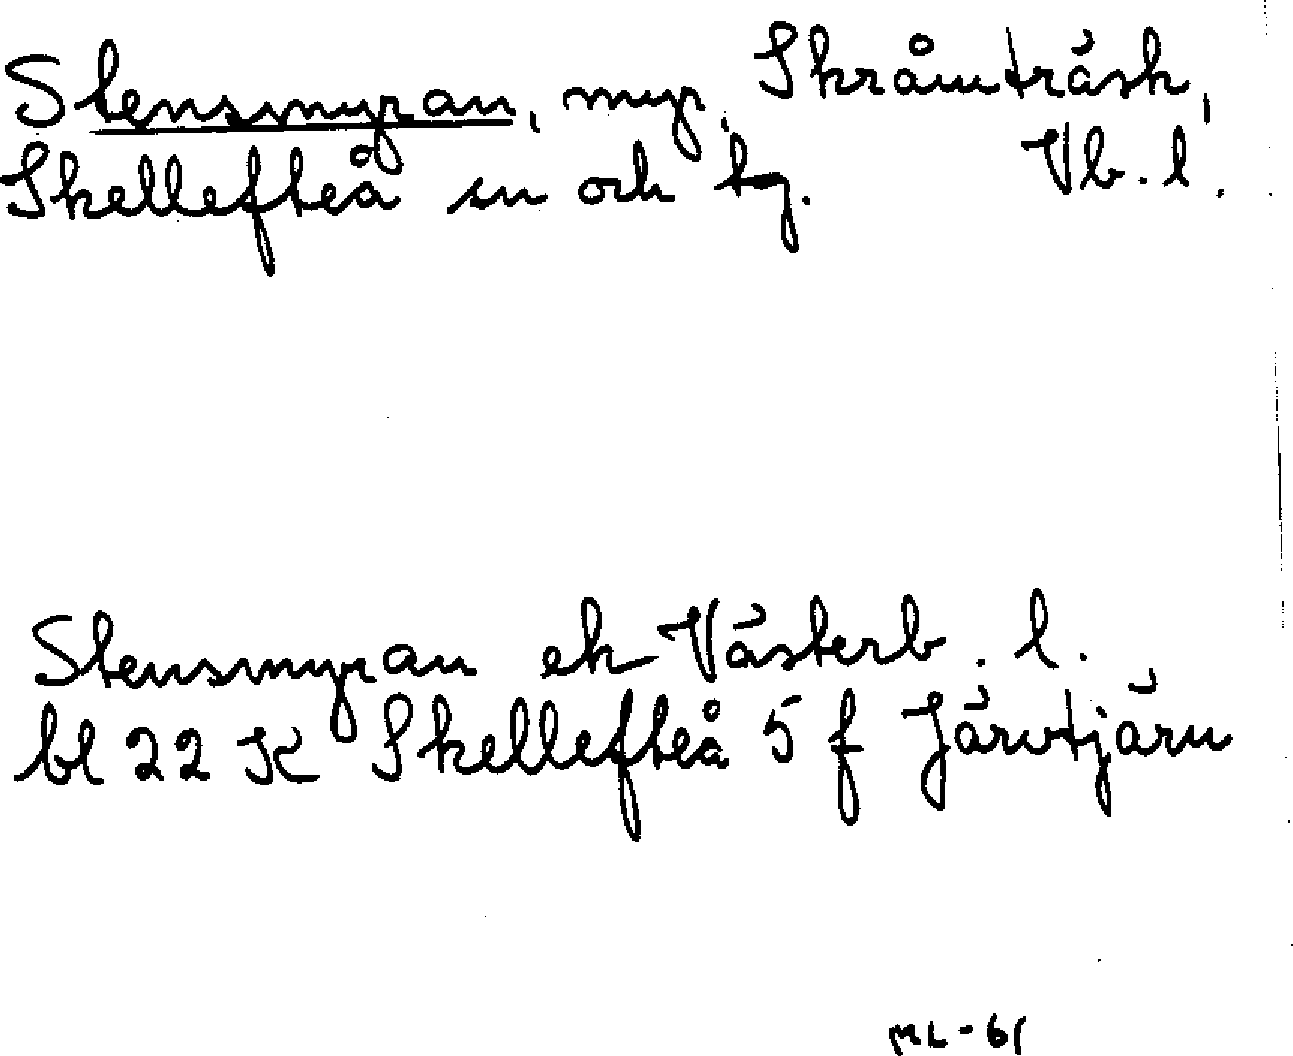 Stensmyran, myr, Skråmträsk,
Skellefteå sn och tg. Vb. l.
Stensmyran ek Västerb. l.
bl 22 K Skellefteå 5 f Järvtjärn
ML-61